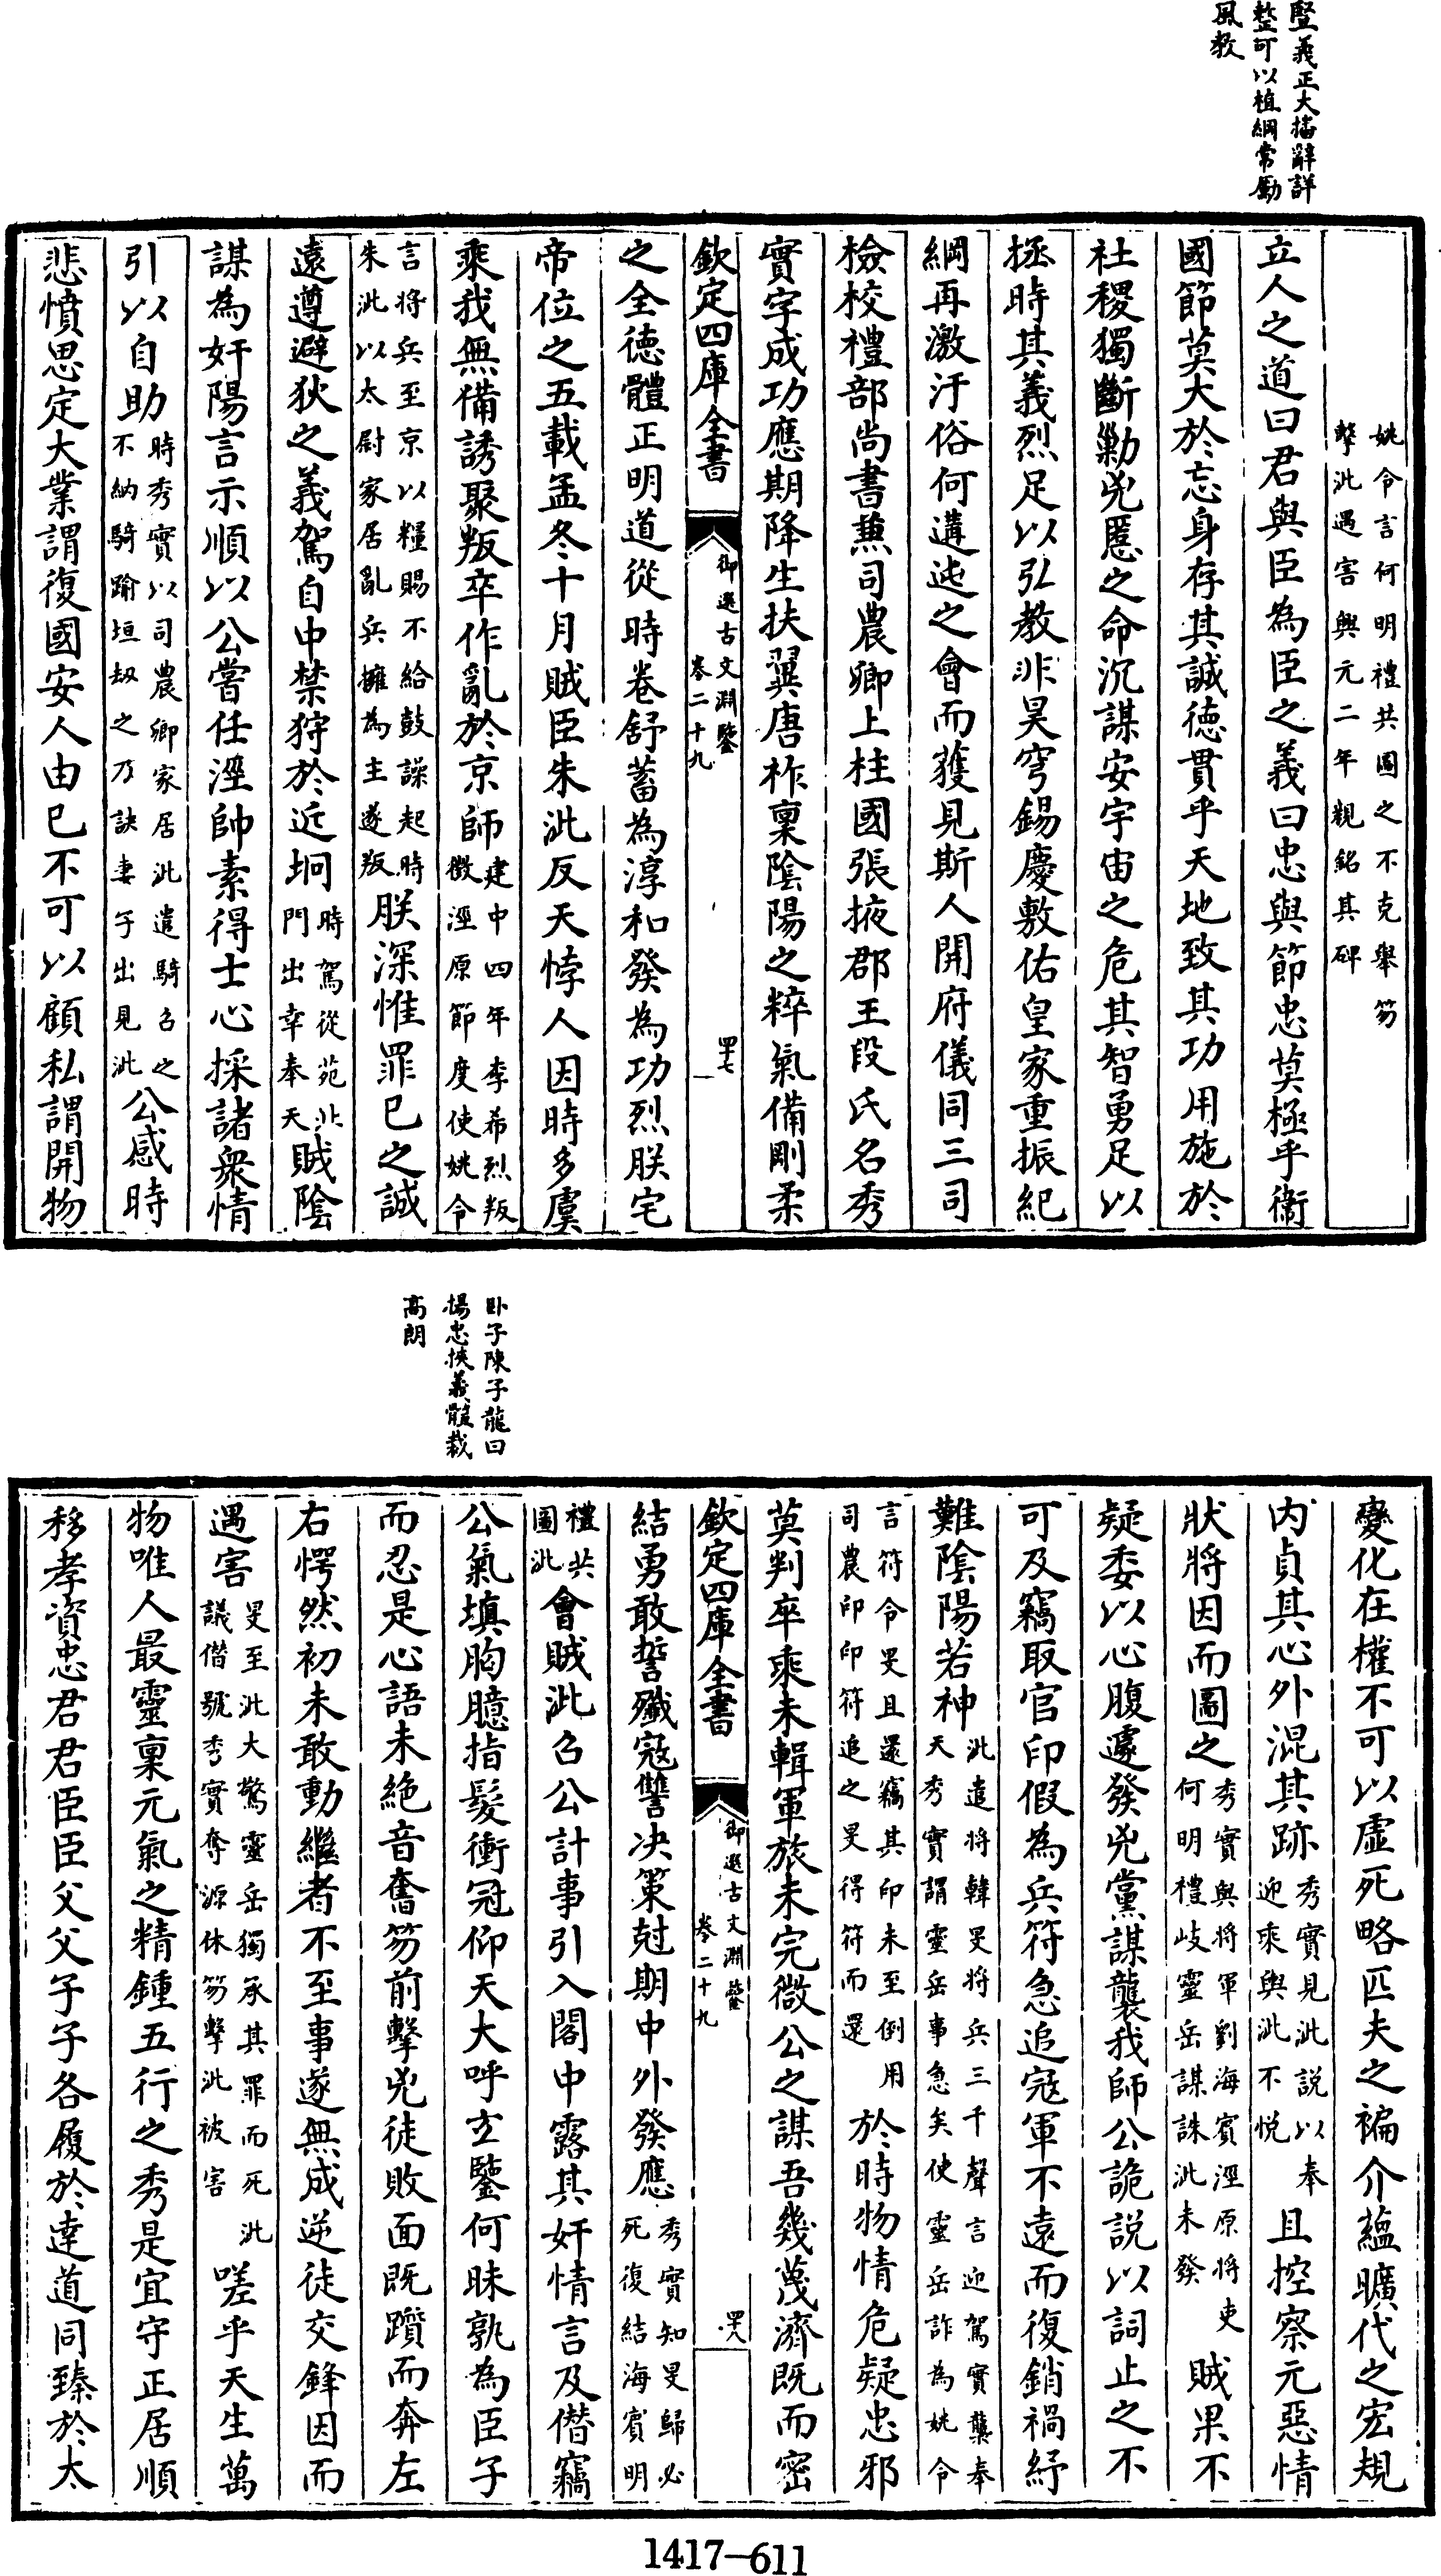 豎義正大摛辭詳
整可以植綱常勵
風教
姚令言何明禮共圖之不克舉笏
擊泚遇害興元二年親銘其碑
立人之道曰君與臣為臣之義曰忠與節忠莫極乎衞
國節莫大於忘身存其誠徳貫乎天地致其功用施於
社稷獨斷勦兇慝之命沉謀安宇宙之危其智勇足以
拯時其義烈足以弘教非昊穹錫慶敷佑皇家重振紀
綱再激汙俗何遘迍之會而獲見斯人開府儀同三司
檢校禮部尚書兼司農卿上柱國張掖郡王段氏名秀
實字成功應期降生扶翼唐祚稟陰陽之粹氣備剛柔
欽定四庫全書
御選古文淵鑒
卷二十九
四十七
之全徳體正明道從時卷舒蓄為淳和發為功烈朕宅
帝位之五載孟冬十月賊臣朱泚反天悖人因時多虞
乘我無備誘聚叛卒作亂於京師建中四年李希烈叛
徵涇原節度使姚令
言將兵至京以糧賜不給鼓譟起時
朱泚以太尉家居亂兵擁為主遂叛朕深惟罪已之誠
遠遵避狄之義駕自中禁狩於近坰時駕從苑北
門出幸奉天賊陰
謀為奸陽言示順以公嘗任涇帥素得士心採諸衆情
引以自助時秀實以司農卿家居泚遣騎召之
不納騎踰垣刼之乃訣妻子出見泚公感時
悲憤思定大業謂復國安人由已不可以顧私謂開物
卧子陳子龍曰
揚忠挾義體裁
高朗
變化在權不可以虚死略匹夫之褊介蘊曠代之宏規
内貞其心外混其跡秀實見泚説以奉
迎乘輿泚不悦且控察元惡情
狀將因而圖之秀實與將軍劉海賓涇原將吏
何明禮岐靈岳謀誅泚未發賊果不
疑委以心腹遽發兇黨謀襲我師公詭説以詞止之不
可及竊取官印假為兵符急追寇軍不遠而復銷禍紓
難陰陽若神泚遣將韓旻將兵三千聲言迎駕實襲奉
天秀實謂靈岳事急矣使靈岳詐為姚令
言符令旻且還竊其印未至倒用
司農印印符追之旻得符而還於時物情危疑忠邪
莫判卒乘未輯軍旅未完微公之謀吾幾蔑濟既而密
欽定四庫全書
御選古文淵鑒
卷二十九
四十八
結勇敢誓殲寇讐决策尅期中外發應秀實知旻歸必
死復結海賓明
禮共
圖泚會賊泚召公計事引入閣中露其奸情言及僭竊
公氣填胸臆指髮衝冠仰天大呼玄鑒何昧孰為臣子
而忍是心語未絶音奮笏前擊兇徒敗面既躓而奔左
右愕然初未敢動繼者不至事遂無成逆徒交鋒因而
遇害旻至泚大驚靈岳獨承其罪而死泚
議僭號秀實奪源休笏擊泚被害嗟乎天生萬
物唯人最靈稟元氣之精鍾五行之秀是宜守正居順
移孝資忠君君臣臣父父子子各履於達道同臻於太
1417-611